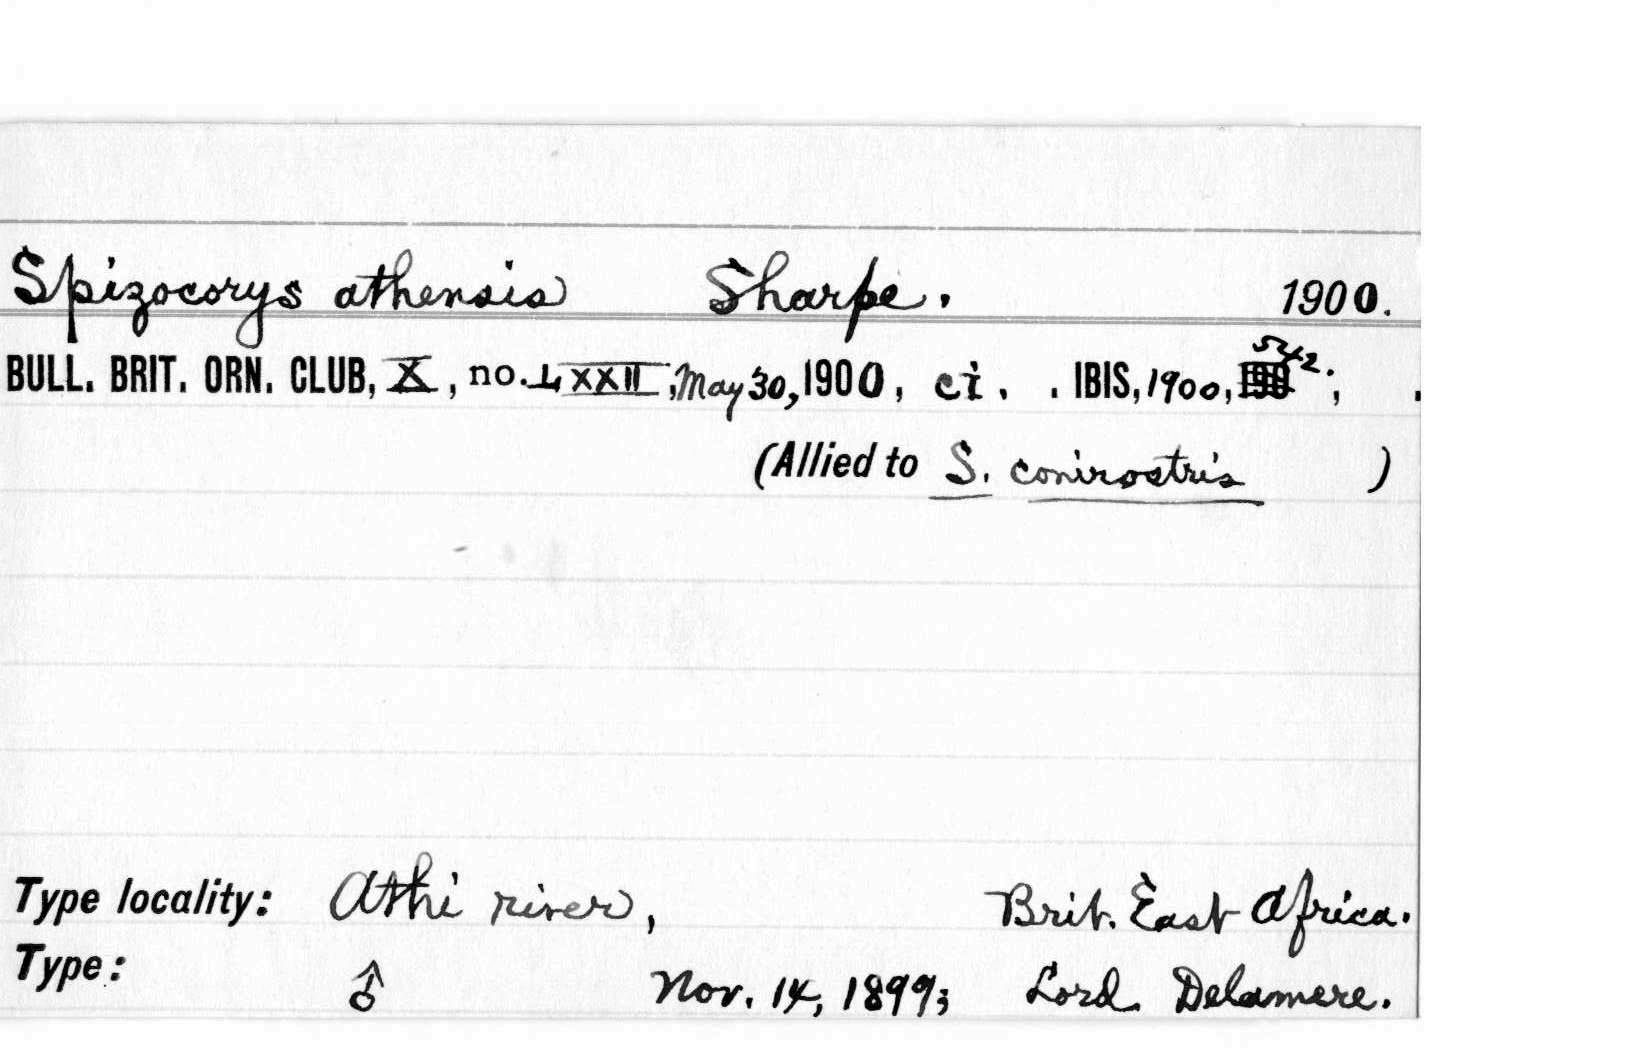 Spizocorys athensis Sharpe. 1900.
BULL. BRIT. ORN. CLUB, X, no. LXXII, May 30, 1900, ci. . IBIS, 1900, 542. ; .
(Allied to S. conirostris )
Type locality: Athi river, Brit. East Africa.
Type: ♂ Nov. 14, 1899; Lord Delamere.